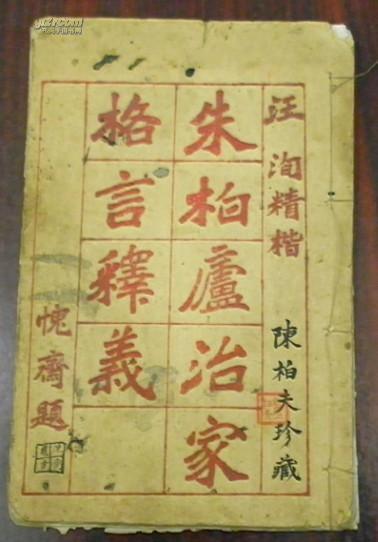 汪洵精楷
陳柏夫珍藏
朱柏廬治家
格言釋義
愧齋題